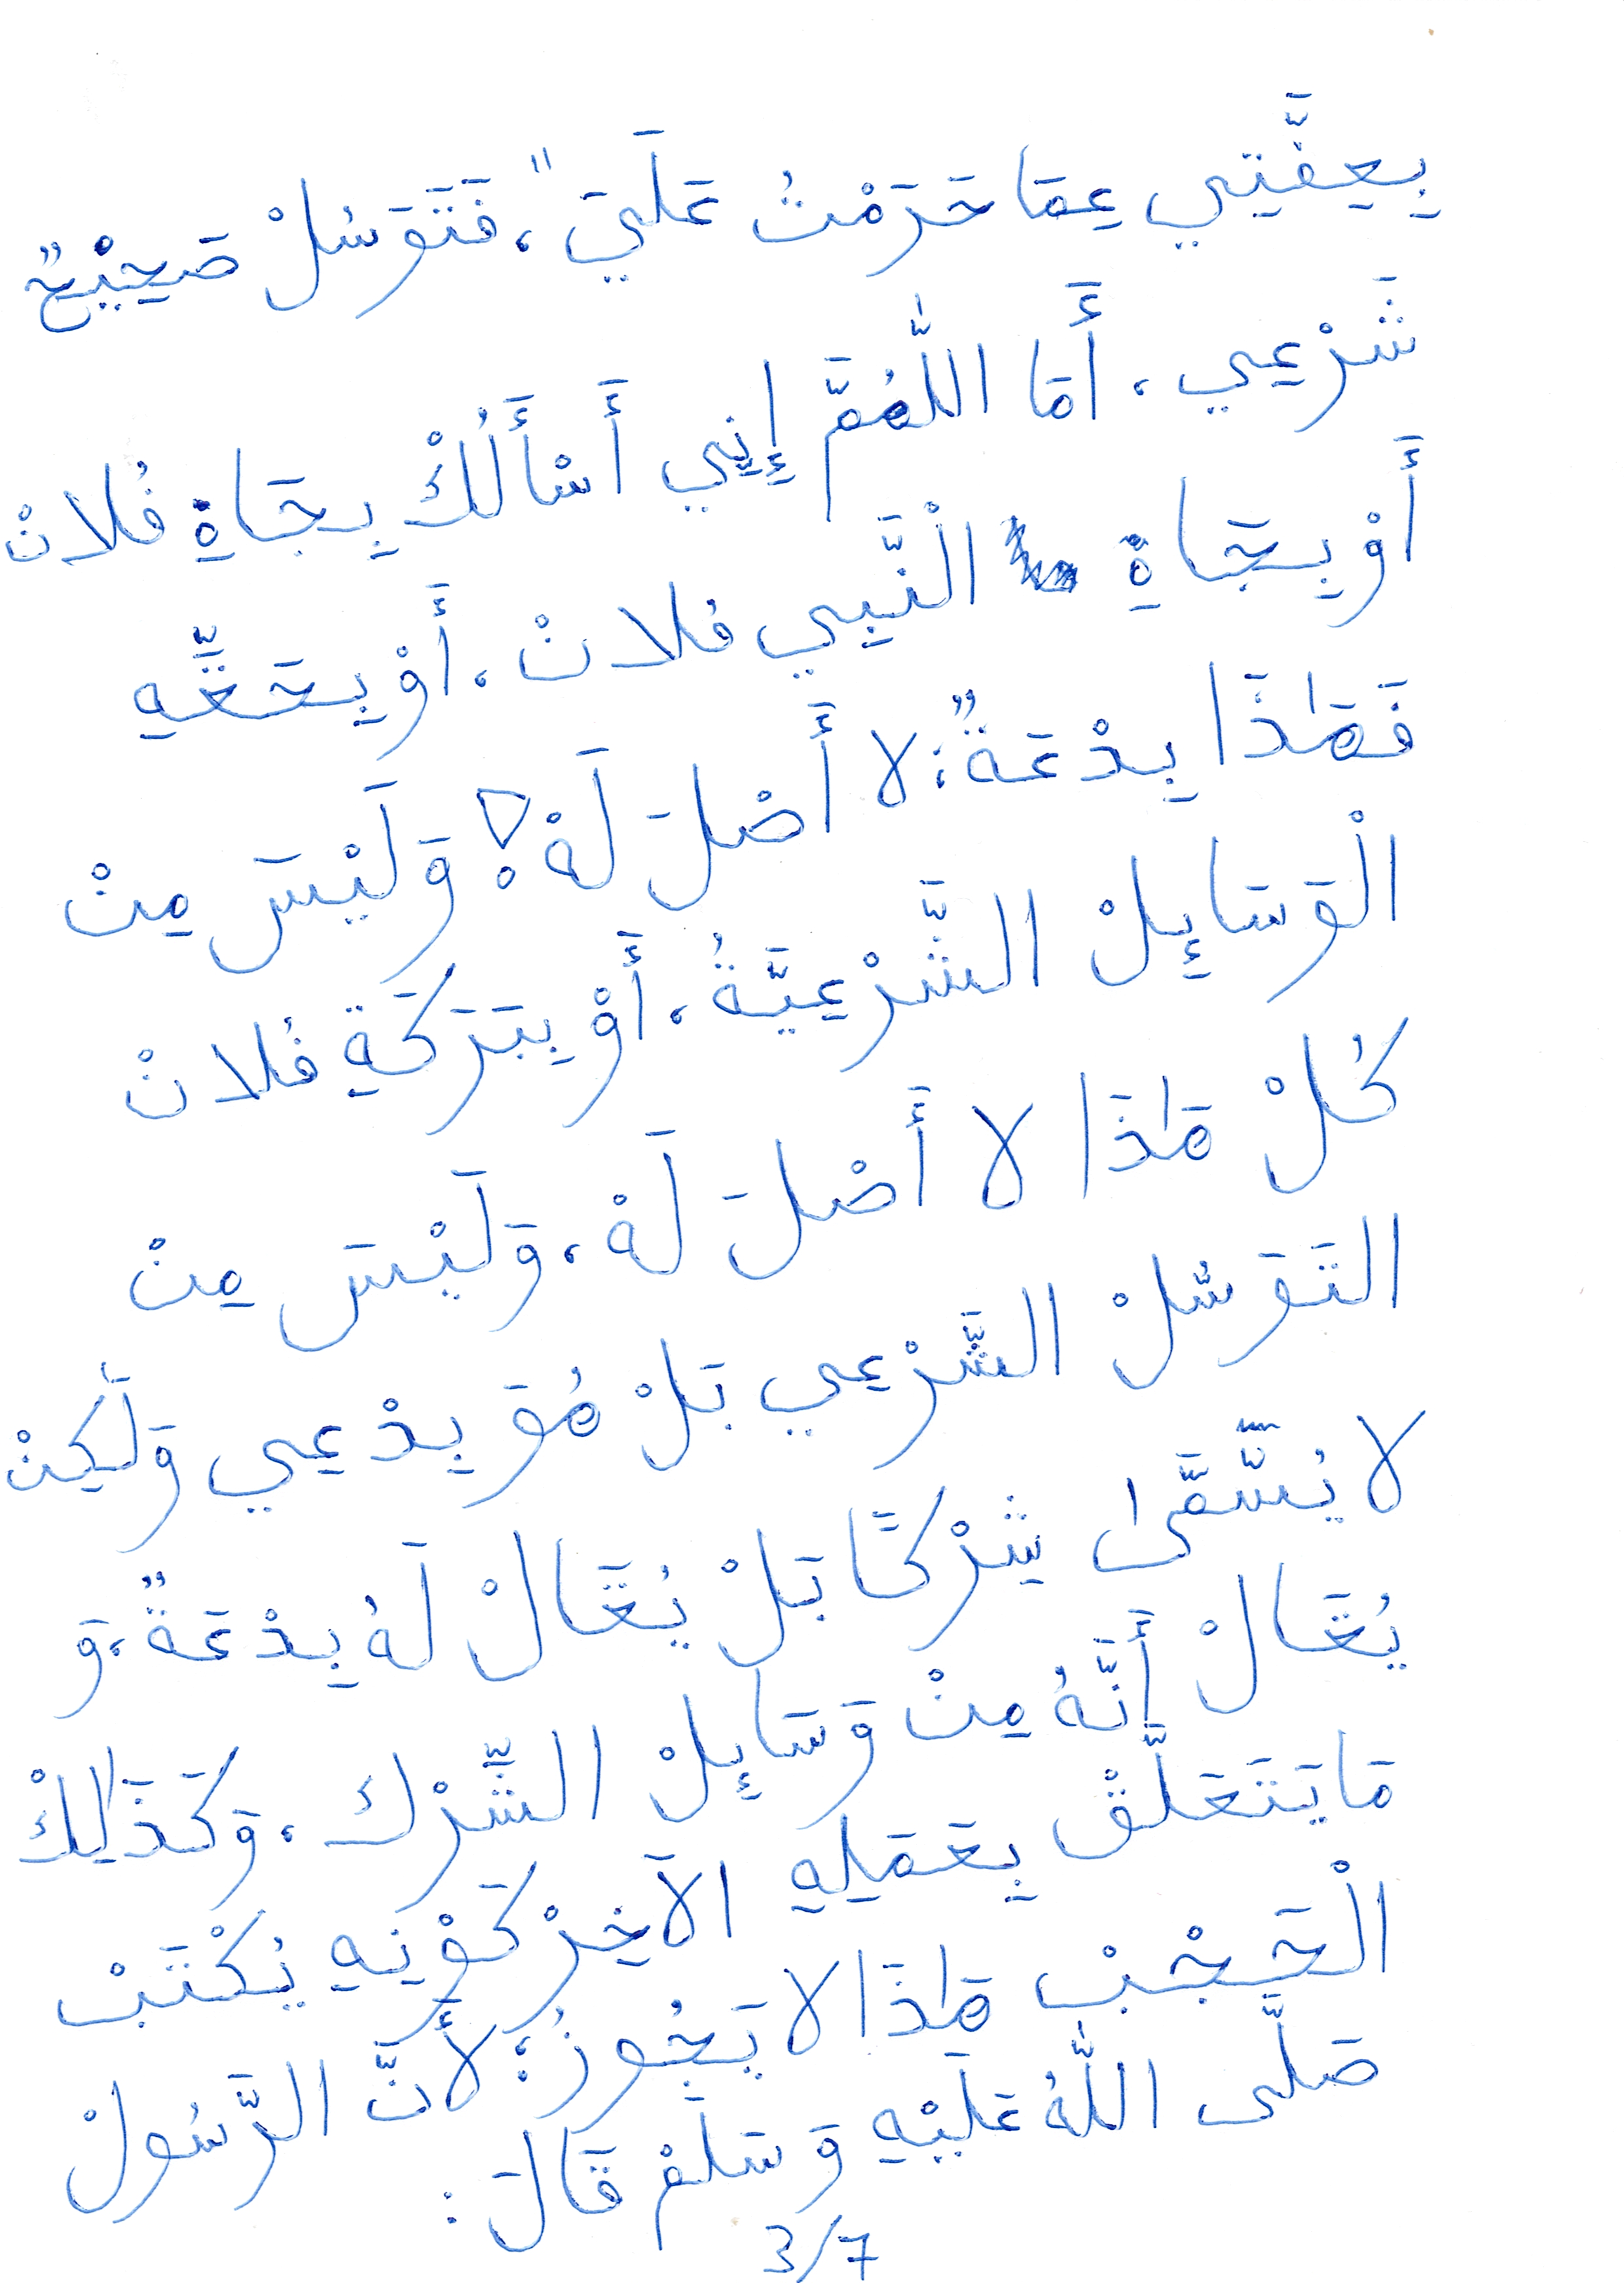 بِعِفَّتِي عِمَا حَرَمْتُ عَلَيَ"، فَتَوَسُلْ صَحِيْحٌ
شَرْعِي، أَمَا اللّٰهُمَّ إِنِي أَسْأَلُكْ بِجَاهِ فُلانْ
أَوْ بِجَاهِ الْنَّبِي فلانْ، أَوْ بِحَقِّهِ
فَهٰذَا بِدْعَةٌ؛ لا أَصْلَ لَهْ؛ وَلَيْسَ مِنْ
الْوَسَائِلْ الشَّرْعِيَّةُ، أَوْ بِبَرَكَةِ فُلانْ
كُلْ هٰذَا لا أَصْلَ لَهْ، وَلَيْسَ مِنْ
التَوَسُّلْ الشَّرْعِي بَلْ هُوَ بِدْعِي وَلَٰكِنْ
لا يُسَّمَّىٰ شِرْكًا بَلْ يُقَالْ لَهُ بِدْعَةٌ، وَ
يُقَالْ أَنَّهُ مِنْ وَسَائِلْ الشِّرْك، وَكَذَٰلِكْ
مَا يَتَعَلَّقْ بِعَمَلِهِ الآخِرْ كَوْنِهِ يُكْتَبْ
الْحَجْبْ هَٰذَا لا يَجُوزُ؛ لأَنَّ الرَّسُولْ
صَلَّى اللّٰهُ عَلَيْهِ وَسَلَمْ قَالَ:
3/7